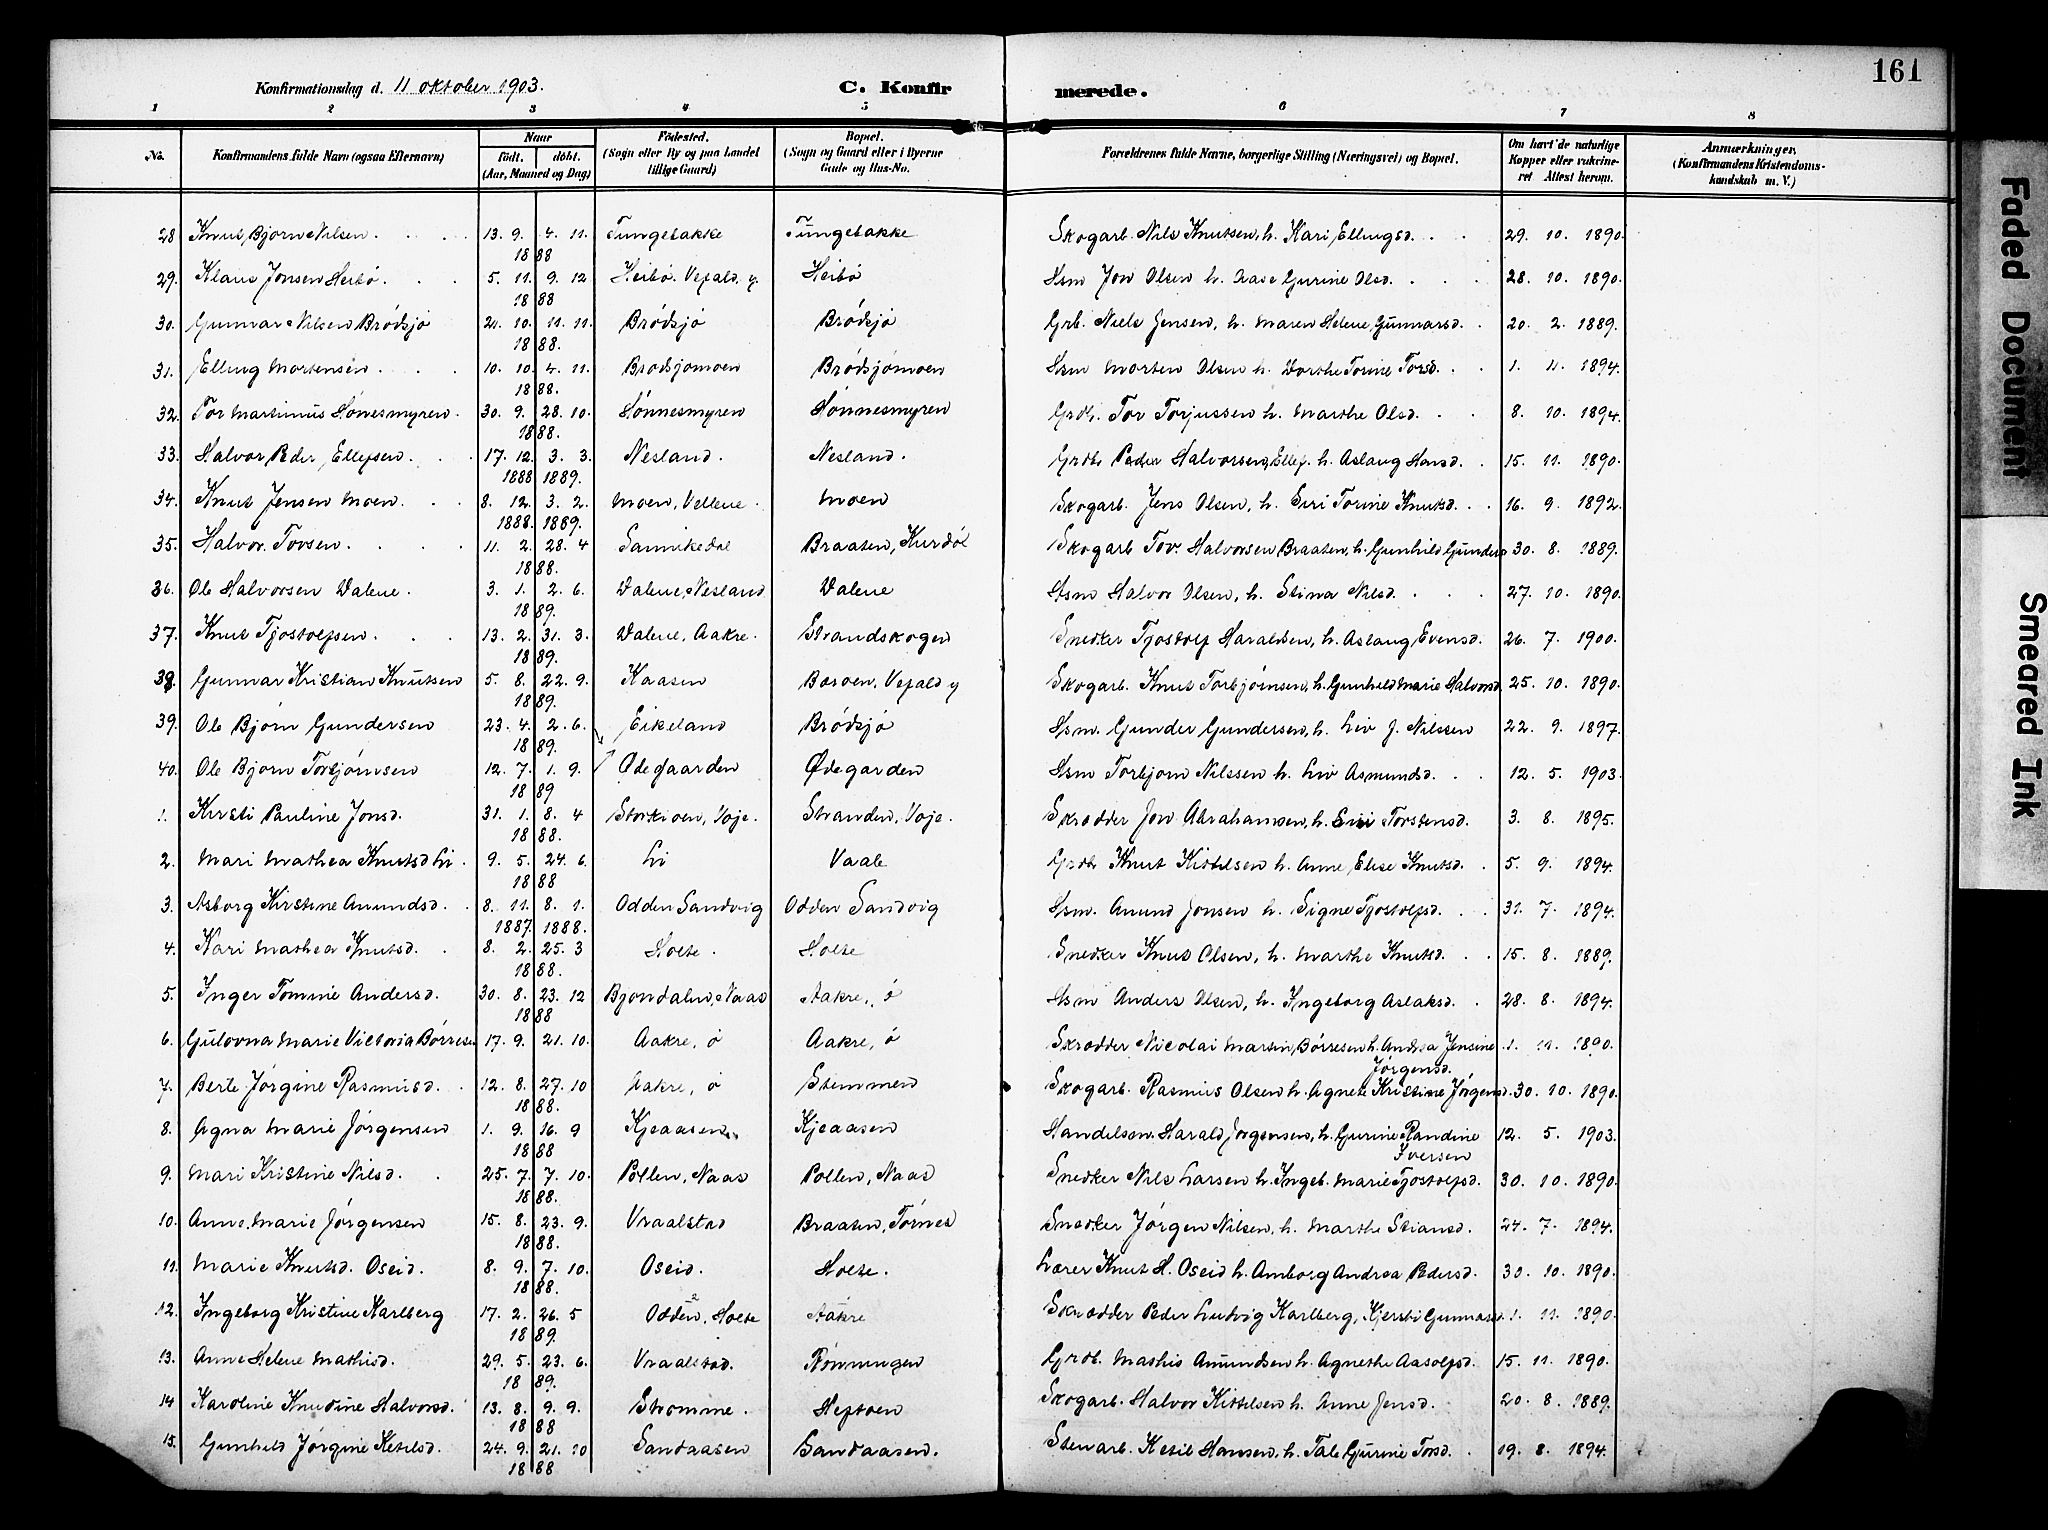 161
Konfirmationsdag d. 11 oktober 1903. C. Konfir merede.
1 2 3 4 5 6 7 8
No. Konfirmandens fulde Navn (ogsaa Efternavn) Naar født. døbt. (Aar, Maaned og Dag) Fødested. (Sogn eller By og paa Landet tillige Gaard) Bopæl. (Sogn og Gaard eller i Byerne Gade og Hus-No. Forældrenes fulde Navne, borgerlige Stilling (Næringsvei) og Bopæl. Om havt de naturlige Kopper eller vakcineret Attest herom. Anmærkninger, (Konfirmandens Kristendomskundskab m. V.)
28 Knut Bjørn Nilsen. 13. 9. 4. 11. 1888 Tungebakke Tungebakke Skogarb. Nils Knutsen, h. Kari Ellingsd. 29. 10. 1890.
29. Klaus Jonsen Heibø. 5. 11. 9. 12 1888 Heibø. Vefald. y. Heibø Hsm Jon Olsen h. Aase Gurine Olsd. 28. 10. 1890.
30. Gunnar Nilsen Brødsjø 21. 10. 11. 11. 1888. Brødsjø Brødsjø Grb. Niels Jensen, h. Maren Helene Gunnarsd. 20. 2. 1889.
31. Elling Mortensen. 10. 10. 4. 11. 1888. Brødsjømoen Brødsjømoen Hsm Morten Olsen h. Dorthe Torine Torsd. 1. 11. 1894.
32. Tor Martinius Hønesmyren. 30. 9. 28. 10. 1888. Hønnesmyren Hønnesmyren Grdb. Tor Torjussen h. Marthe Olsd. 8. 10. 1894.
33. Halvor Peder Ellefsen. 17. 12. 3. 3. 1888 1889. Nesland. Nesland. Grdb Peder Halvorsen, Ellef. h. Aslaug Hansd. 15. 11. 1890.
34. Knut Jensen Moen. 8. 12. 3. 2. 1888. 1889. Moen, Vellene. Moen Skogarb. Jens Olsen, h. Siri Torine Knutsd. 16. 9. 1892.
35. Halvor Torsen. 11. 2. 28. 4 1888. Sannikedal Braaten, Kurdøl Skogarb Tov. Halvorsen Braaten, h. Gunhild Gunders 30. 8. 1889.
36. Ole Halvorsen Dalene. 3. 1. 2. 6. 1889. Dalene, Nesland Dalene Hsm Halvor Olsen, h. Stina Nilsd. 27. 10. 1890.
37. Knut Tjostolfsen. 13. 2. 31. 3. 1889. Dalene, Aakre. Strandskogen Snedker Tjostolf Haraldsen, h. Aslaug Evensd. 26. 7. 1900.
38. Gunnar Kristian Knutsen 5. 8. 22. 9. 1889. Kaasen Baroen, Vefald y Skogarb. Knut Torbjørnsen, h. Gunhild Marie Halvorsd. 25. 10. 1890.
39. Ole Bjørn Gundersen 23. 4. 2. 6. 1889. Eikeland Brødsjø Hsm. Gunder Gundersen, h. Liv J. Nilssen 22. 9. 1897.
40. Ole Bjørn Torbjørnsen 12. 7. 1. 9. 1889 Ødegaarden Ødegarden Hsm Torbjørn Nilssen h. Liv Asmundsd. 12. 5. 1903.
1. Kirsti Pauline Jonsd. 31. 1. 8. 4 1888. Storkioen, Voje. Stranden, Voje. Skrædder Jon Abrahamsen, h. Siri Torstensd. 3. 8. 1895.
2. Mari Mathea Knutsd Li. 9. 5. 24. 6. 1888 Li Vaale Grdb Knut Kittelsen h. Anne Elise Knutsd. 5. 9. 1894.
3. Asborg Kirstine Anundsd. 8. 11. 8. 1. 1887. 1888. Odden Sandvig Odden Sandvig Hsm. Anund Jonsen h. Signe Tjostolfsd. 31. 7. 1894.
4. Kari Mathea Knutsd. 8. 2. 25. 3 1888. Holte. Holte Snedker Knut Olsen, h. Marthe Knutsd. 15. 8. 1889.
5. Inger Tomine Andersd. 30. 8. 23. 12 1888 Bjøndalen, Naas Aakre, ø Hsm Anders Olsen, h. Ingeborg Aslaksd. 28. 8. 1894.
6. Gulovna Marie Victoria Børresen 17. 9. 21. 10. Aakre, ø Aakre, ø Skrædder Nicolai Martin Børresen h. Andrea Jensine Jørgensd. 1. 11. 1890.
7. Berte Jørgine Rasmusd. 12. 8. 27. 10 1888. Aakre, ø Stemmen Skogarb. Rasmus Olsen h. Agnete Kristine Jørgensd. 30. 10. 1890.
8. Agna Marie Jørgensen 1. 9. 16. 9 1888 Kjeaasen Kjeaasen Handelsm. Harald Jørgensen, h. Gurine Randine Iversen 12. 5. 1903.
9. Mari Kristine Nilsd. 25. 7. 7. 10. 1888. Pollen, Naas Pollen, Naas Snedker Nils Larsen h. Ingeb. Marie Tjostolfsd. 30. 10. 1890.
10. Anne Marie Jørgensen 15. 8. 23. 9. 1888. Vraalstad Braaten, Tørnes Snedker Jørgen Nilsen, h. Marthe Stiansd. 24. 7. 1894.
11. Marie Knutsd. Oseid. 8. 9. 7. 10. 1888. Oseid. Holte. Lærer Knut H. Oseid h. Amborg Andrea Pedersd. 30. 10. 1890.
12. Ingeborg Kristine Karlberg 17. 2. 26. 5 1889. Odden, Holte Aakre Skrædder Peder Ludvig Karlberg, Kjersti Gunnarsd. 1. 11. 1890.
13. Anne Helene Mathisd. 29. 5. 23. 6. 1889. Vraalstad. Rønningen Grdb. Mathis Amundsen h. Agnethe Aasolfsd. 15. 11. 1890.
14 Karoline Knudine Halvorsd. 13. 8. 9. 9. 1888 Strømme. Heftøen Skogarb. Halvor Kittelsen h. Anne Jensd. 20. 8. 1889.
15. Gunhild Jørgine Ketilsd. 24. 9. 21. 10 1888 Sandaasen Sandaasen. Stenarb. Ketil Hansen, h. Tale Gurine Torsd. 19. 8. 1894.
Faded Document
Smeared Ink